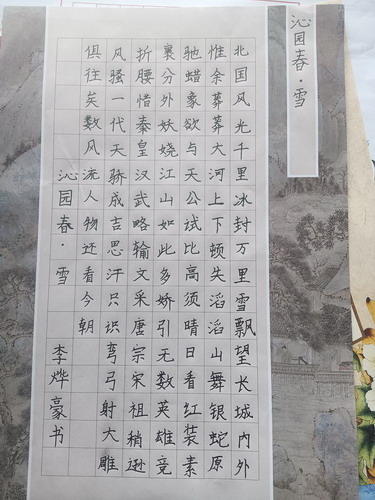 沁园春·雪
北国风光千里冰封万里雪飘望长城内外
惟余莽莽大河上下顿失滔滔山舞银蛇原
驰蜡象欲与天公试比高须晴日看红装素
裹分外妖娆江山如此多娇引无数英雄竞
折腰惜秦皇汉武略输文采唐宗宋祖稍逊
风骚一代天骄成吉思汗只识弯弓射大雕
俱往矣数风流人物还看今朝
沁园春·雪 李烨豪书